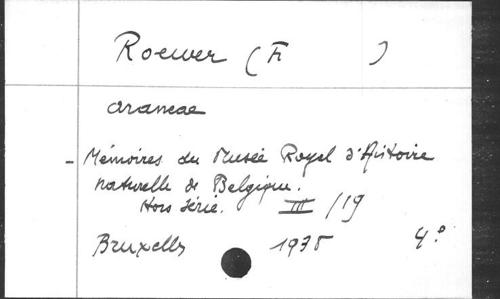 Roewer (Fr )
araneae
- Mémoires du Musée Royal d'Histoire
naturelle de Belgique.
Hors Série. III / 19
Bruxelles 1938 4.°